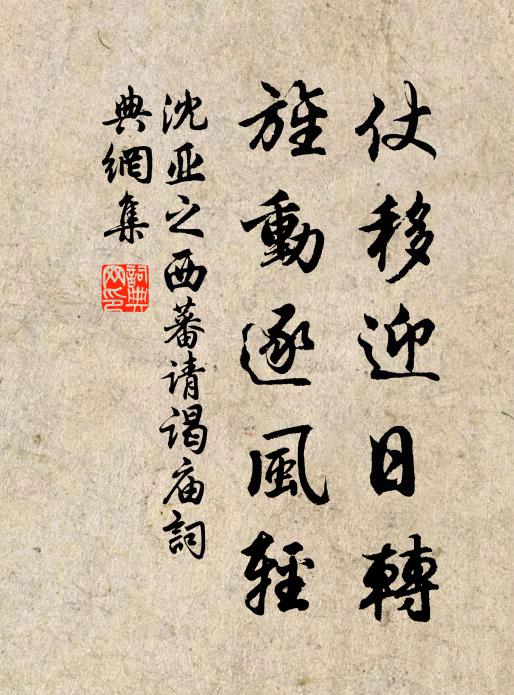 仗移迎日轉
旌動逐風輕
沈亚之西蕃请谒庙詞
典網集
詞典网印